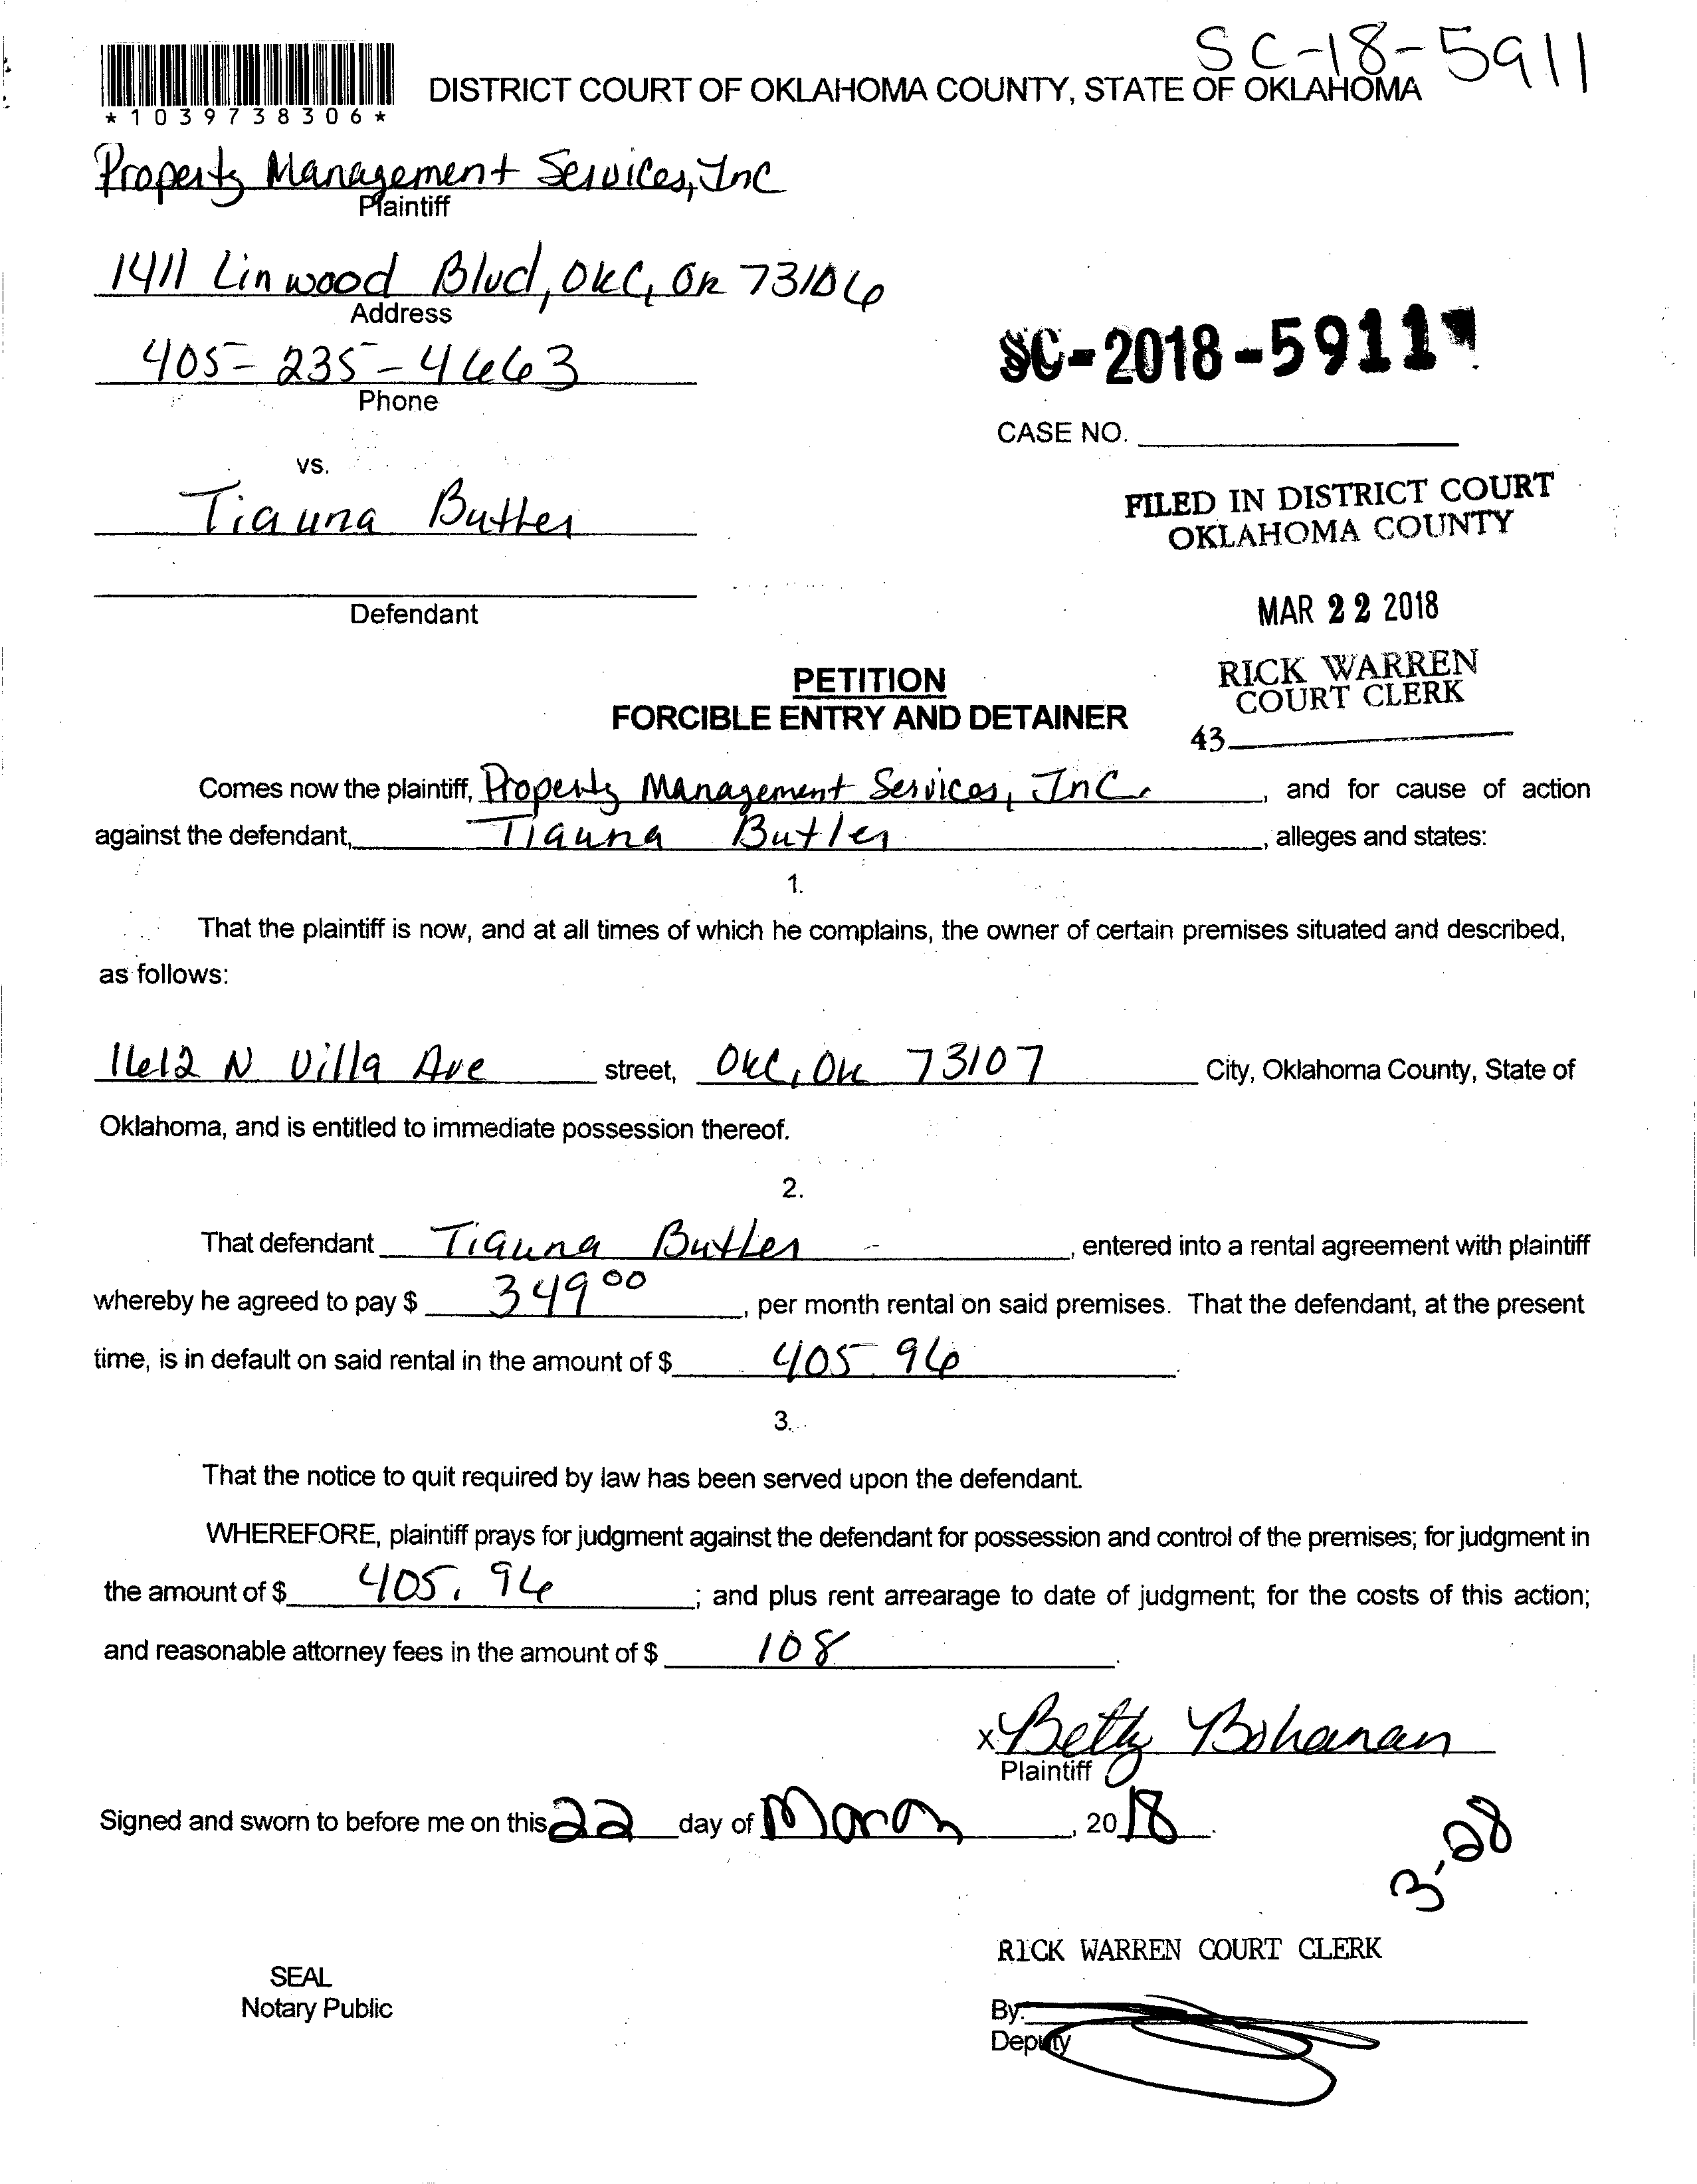 SC-18-5911
*1039738306*
DISTRICT COURT OF OKLAHOMA COUNTY, STATE OF OKLAHOMA
Property Management Services, Inc
Plaintiff
1411 Linwood Blvd, OKC, OK 73106
Address
405-235-4663
Phone
SC-2018-5911
CASE NO.
vs.
Tiauna Butler
FILED IN DISTRICT COURT
OKLAHOMA COUNTY
Defendant
MAR 22 2018
PETITION
FORCIBLE ENTRY AND DETAINER
RICK WARREN
COURT CLERK
43
Comes now the plaintiff, Property Management Services, Inc. , and for cause of action
against the defendant, Tiauna Butler , alleges and states:
1.
That the plaintiff is now, and at all times of which he complains, the owner of certain premises situated and described,
as follows:
1612 N Villa Ave street, OKC, OK 73107 City, Oklahoma County, State of
Oklahoma, and is entitled to immediate possession thereof.
2.
That defendant Tiauna Butler - , entered into a rental agreement with plaintiff
whereby he agreed to pay $ 349 00 , per month rental on said premises. That the defendant, at the present
time, is in default on said rental in the amount of $ 405.96 .
3.
That the notice to quit required by law has been served upon the defendant.
WHEREFORE, plaintiff prays for judgment against the defendant for possession and control of the premises; for judgment in
the amount of $ 405.96 ; and plus rent arrearage to date of judgment; for the costs of this action;
and reasonable attorney fees in the amount of $ 108 .
x Betty Bohanan
Plaintiff
Signed and sworn to before me on this 22 day of March , 2018 .
3-28
RICK WARREN COURT CLERK
SEAL
Notary Public
By:
Deputy